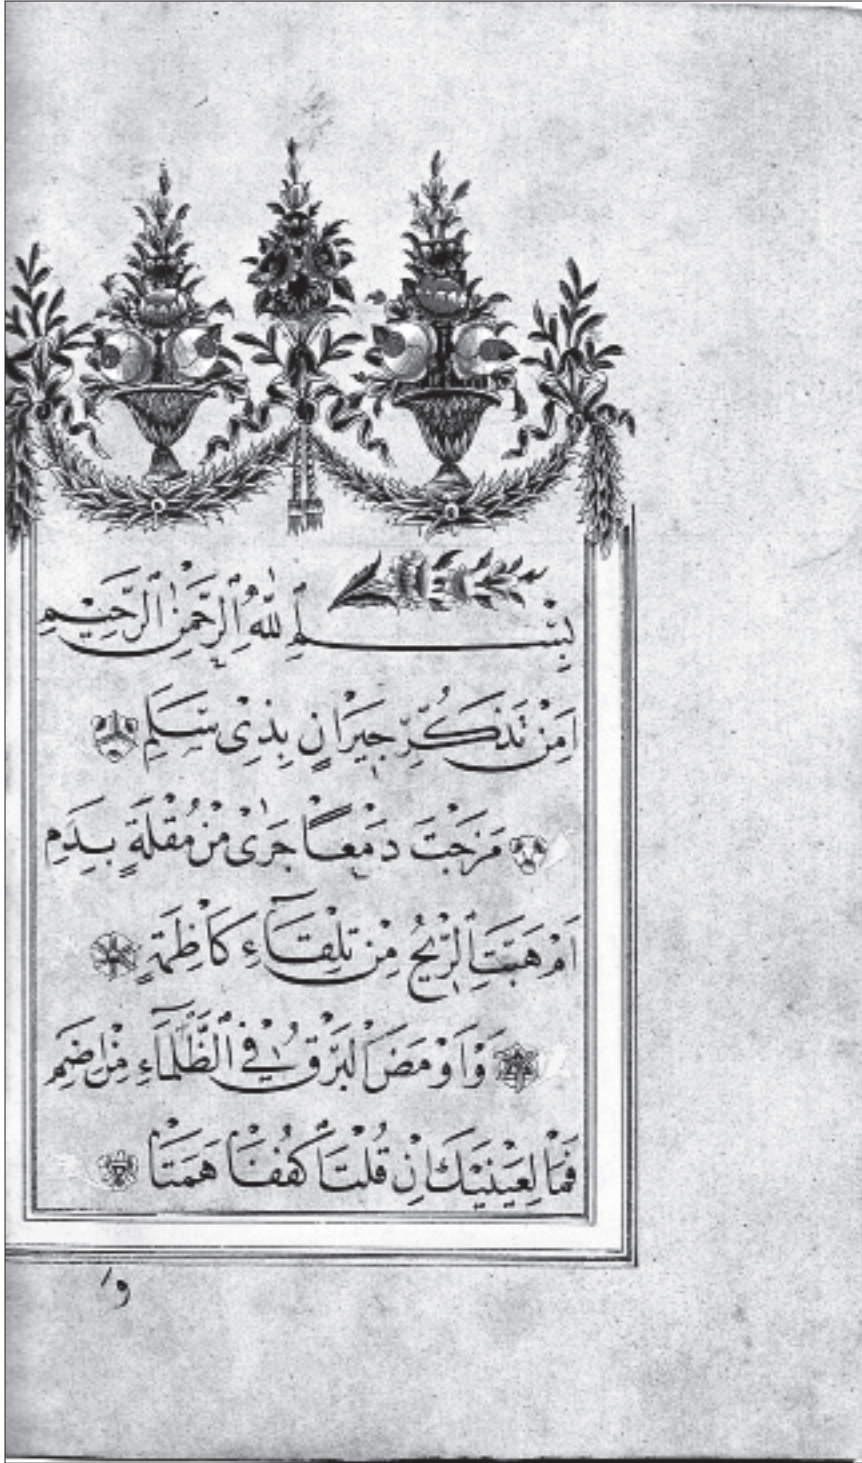 بِسْمِ للّٰهِ ٱلرَّحْمٰنِ ٱلرَّحِيمِ
اَمِنْ تَذَكُّرِ جِيرَانٍ بِذِى سَلَمِ
مَزَجْتَ دَمْعًا جَرٰى مِنْ مُقْلَةٍ بِدَمِ
اَمْ هَبَّتِ ٱلرِّيحُ مِنْ تِلْقَاۤءِ كَاظِمَةٍ
وَاَوْمَضَ الْبَرْقُ فِي ٱلظَّلْمَاۤءِ مِنْ اِضَمِ
فَمَا لِعَيْنَيْكَ اِنْ قُلْتَ اكْفُفَا هَمَتَا
و